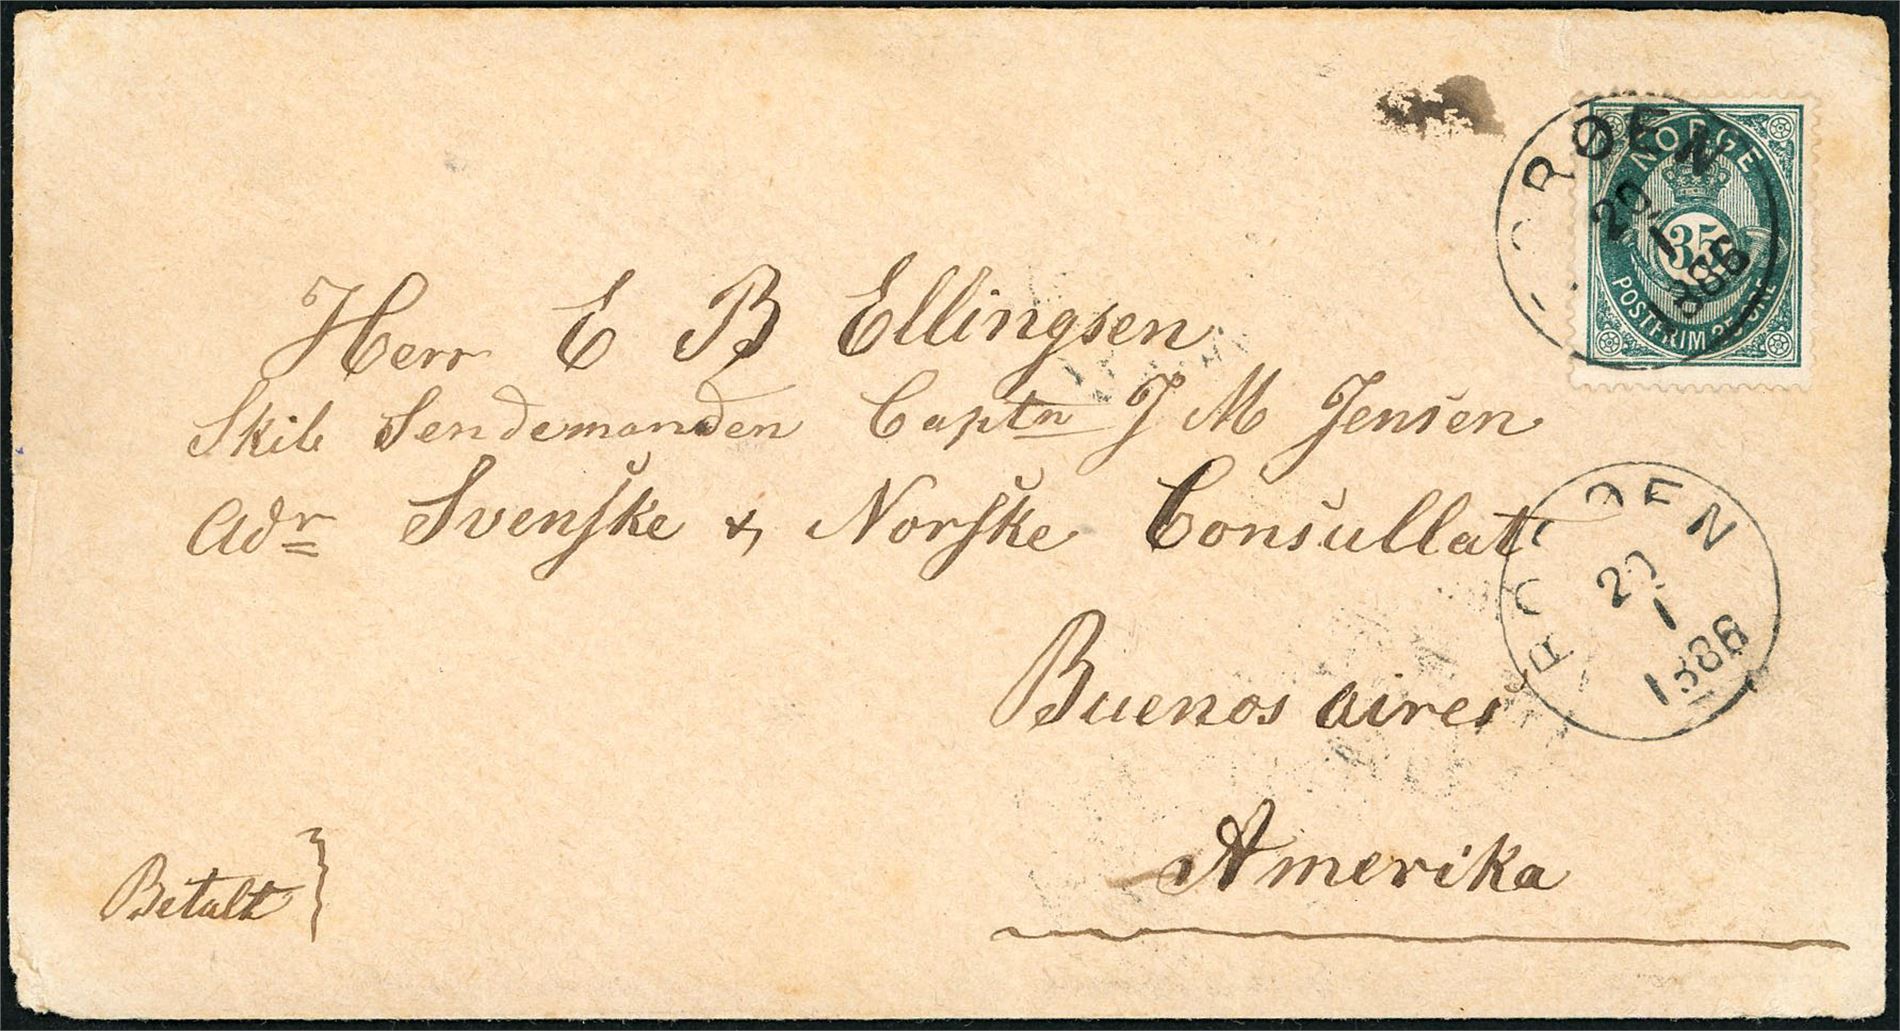 NORGE
35
POSTFRIM 35 ØRE
20
1
1886
Herr E B Ellingsen
Skib Sendemanden Captn J M Jensen
Adr Svenske & Norske Consullat
Buenos aires
Amerika
Betalt }
20
1
1886